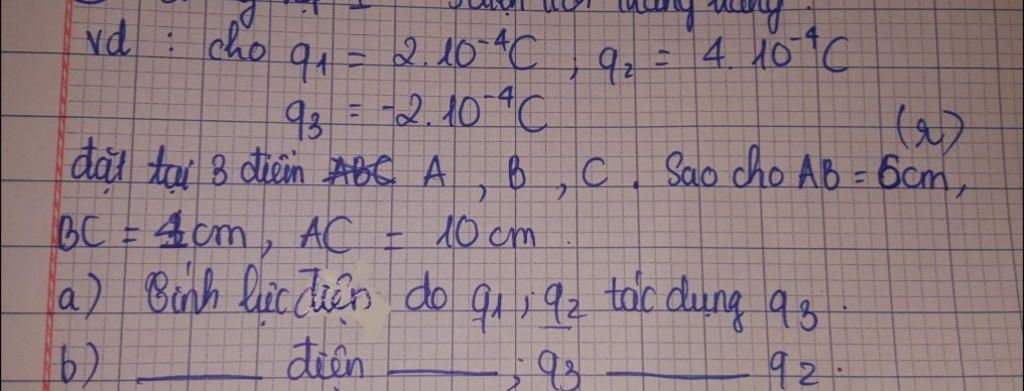 vd : cho q1 = 2.10⁻⁴C , q2 = 4.10⁻⁴C
q3 = -2.10⁻⁴C
(r)
đặt tại 3 điểm A , B , C . Sao cho AB = 6cm,
BC = 4cm, AC = 10cm.
a) Tính lực điện do q1 ; q2 tác dụng q3.
b) ____ điện ____ ; q3 ____ q2.